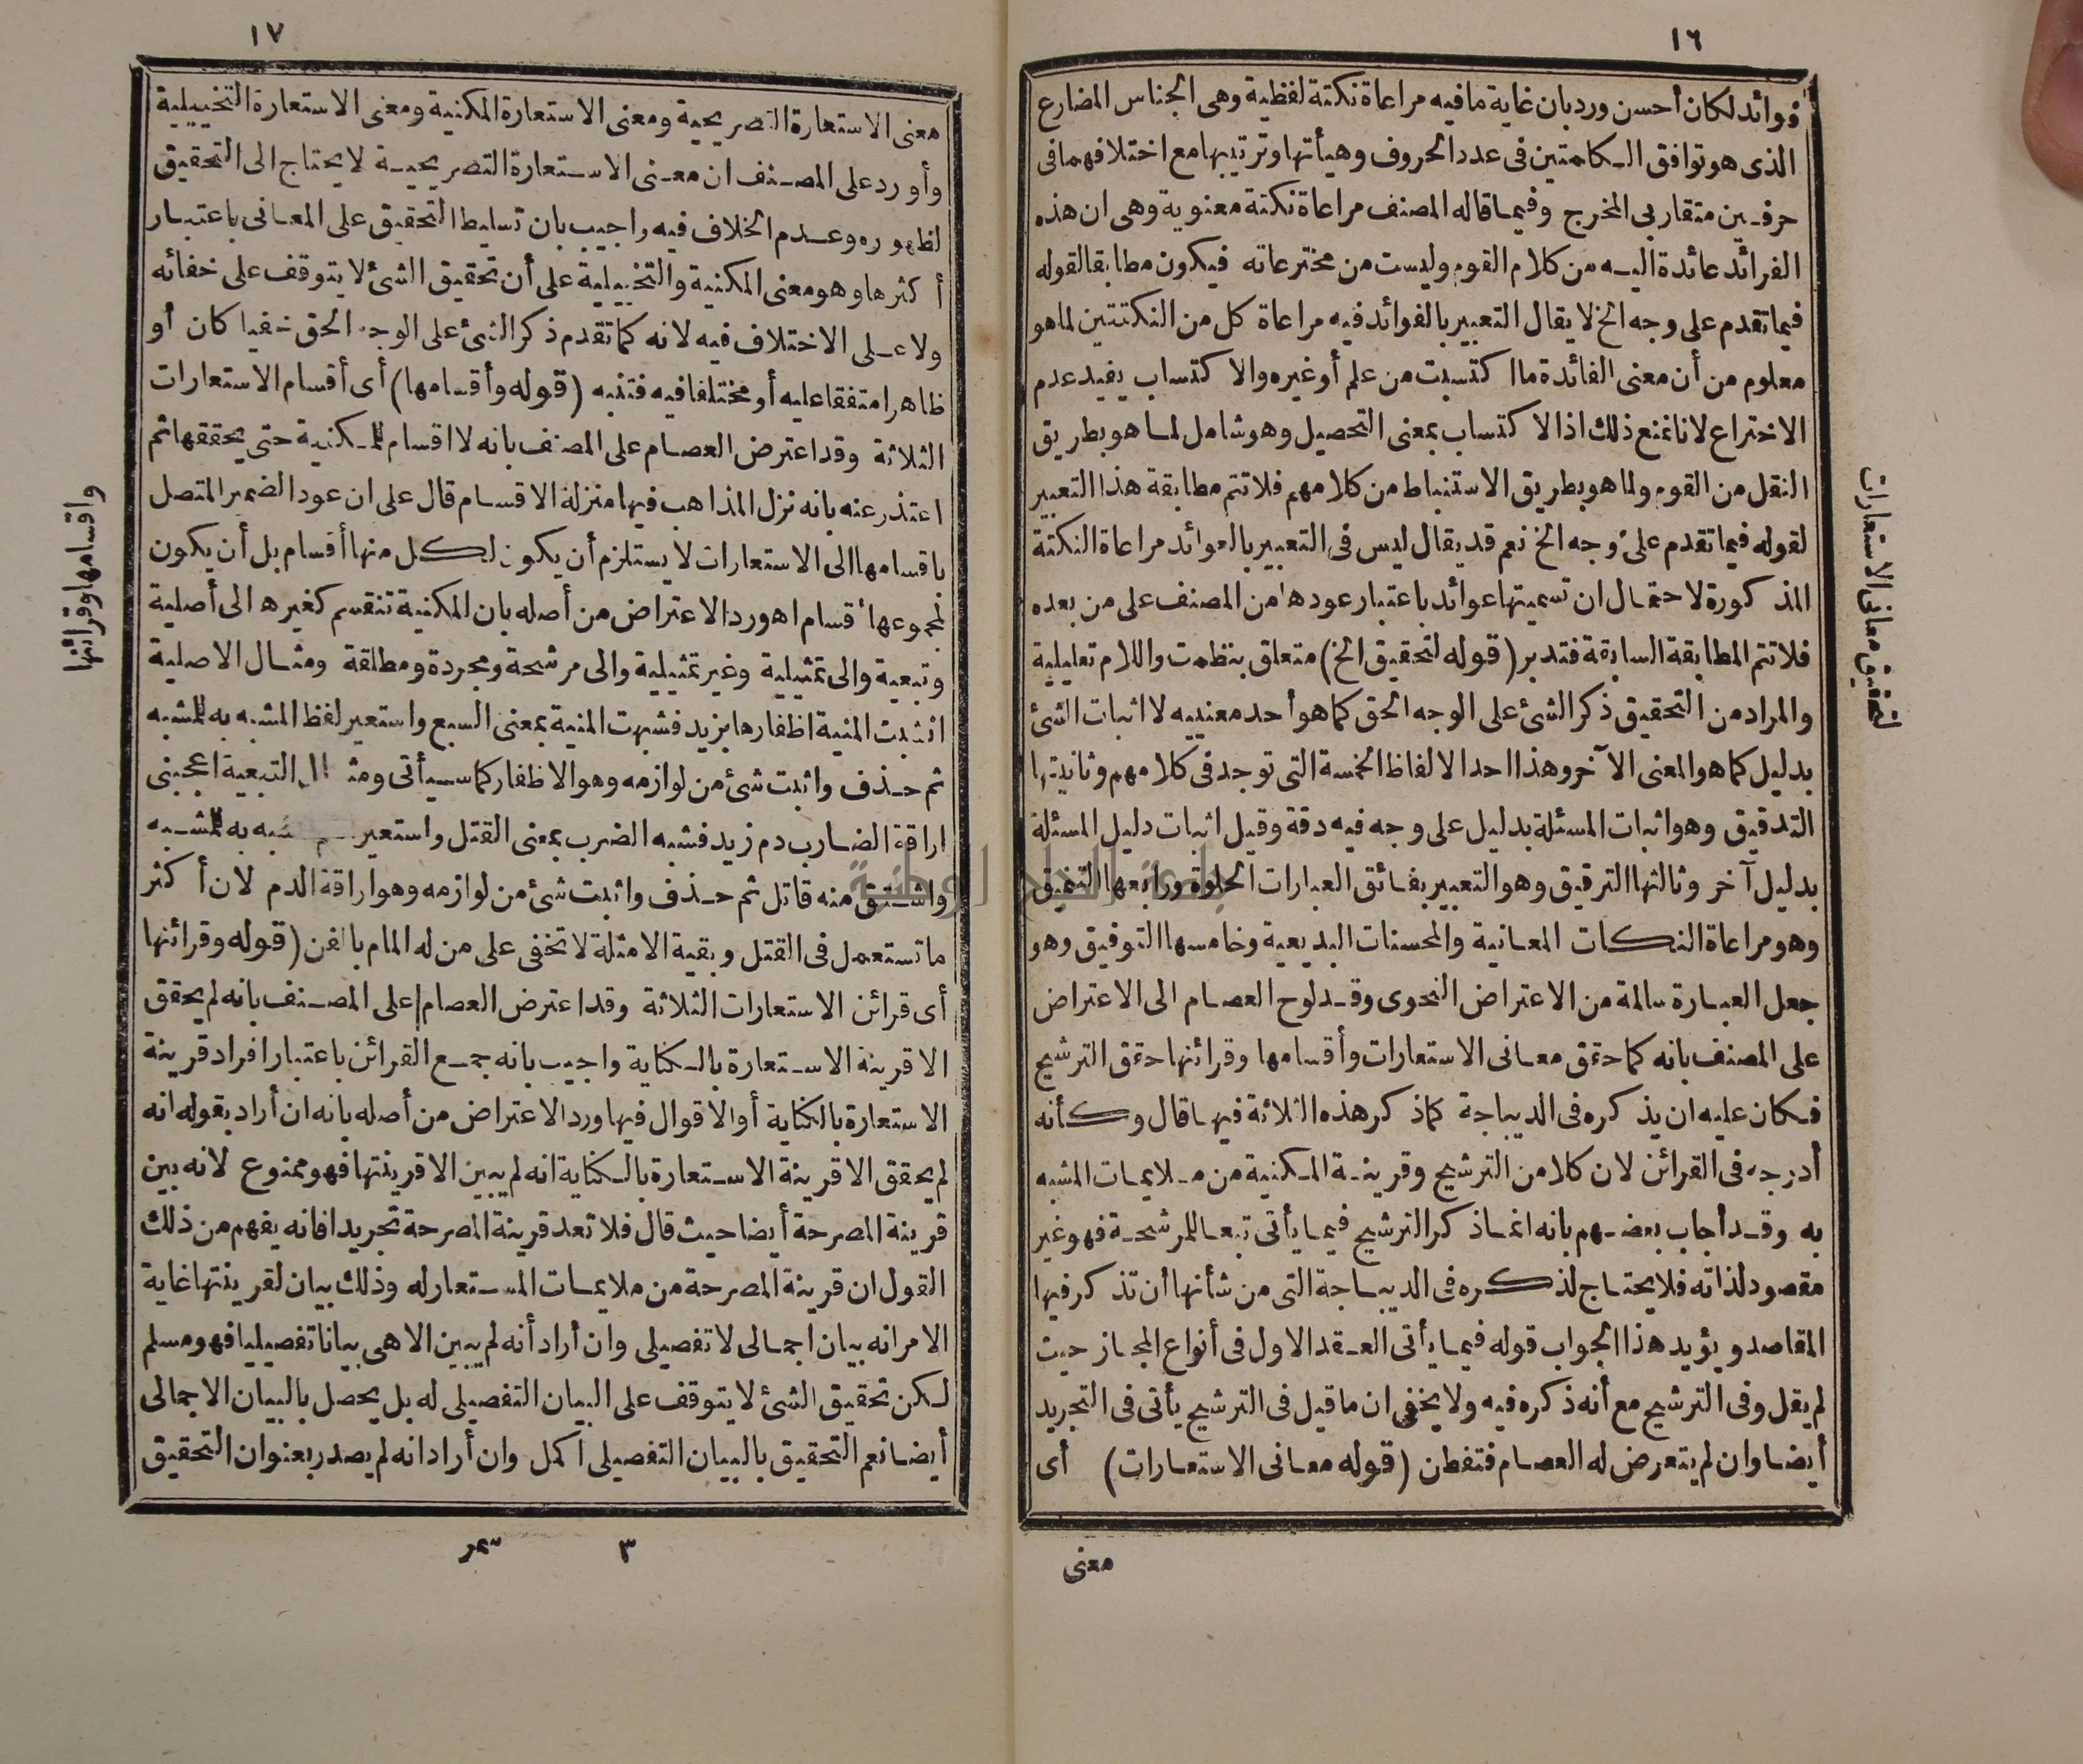 ١٦
فوائد لكان أحسن ورد بان غاية ما فيه مراعاة نكتة لفظية وهى الجناس المضارع
الذى هو توافق الكلمتين فى عدد الحروف وهيأتها وترتيبها مع اختلافهما فى
حرفين متقاربى المخرج وفيما قاله المصنف مراعاة نكتة معنوية وهى ان هذه
الفرائد عائدة اليه من كلام القوم وليست من مخترعاته فيكون مطابقا لقوله
فيما تقدم على وجه الخ لا يقال التعبير بالفوائد فيه مراعاة كل من النكتتين لما هو
معلوم من أن معنى الفائدة ما اكتسبت من علم أو غيره والاكتساب يفيد عدم
الاختراع لانا نمنع ذلك اذ الاكتساب بمعنى التحصيل وهو شامل لما هو بطريق
النقل من القوم ولما هو بطريق الاستنباط من كلامهم فلا تتم مطابقة هذا التعبير
لقوله فيما تقدم على وجه الخ نعم قد يقال ليس فى التعبير بالعوائد مراعاة النكتة
المذكورة لاحتمال ان تسميتها عوائد باعتبار عودها من المصنف على من بعده
فلا تتم المطابقة السابقة فتدبر (قوله لتحقيق الخ) متعلق بنظمت واللام تعليلية
والمراد من التحقيق ذكر الشئ على الوجه الحق كما هو أحد معنييه لا اثبات الشئ
بدليل كما هو المعنى الآخر وهذا احد الالفاظ الخمسة التى توجد فى كلامهم وثانيتها
التدقيق وهو اثبات المسئلة بدليل على وجه فيه دقة وقيل اثبات دليل المسئلة
بدليل آخر وثالثها الترقيق وهو التعبير بفائق العبارات الحلوة ورابعها التنميق
وهو مراعاة النكات المعانية والمحسنات البديعية وخامسها التوفيق وهو
جعل العبارة سالمة من الاعتراض النحوى وقد لوح العصام الى الاعتراض
على المصنف بانه كما حقق معانى الاستعارات وأقسامها وقرائنها حقق الترشيح
فكان عليه ان يذكره فى الديباجة كما ذكر هذه الثلاثة فيها قال وكأنه
أدرجه فى القرائن لان كلا من الترشيح وقرينة المكنية من ملايمات المشبه
به وقد أجاب بعضهم بانه انما ذكر الترشيح فيما يأتى تبعا للمرشحة فهو غير
مقصود لذاته فلا يحتاج لذكره فى الديباجة التى من شأنها أن تذكر فيها
المقاصد ويؤيد هذا الجواب قوله فيما يأتى العقد الاول فى أنواع المجاز حيث
لم يقل وفى الترشيح مع أنه ذكره فيه ولا يخفى ان ما قيل فى الترشيح يأتى فى التجريد
أيضا وان لم يتعرض له العصام فتفطن (قوله معانى الاستعارات) أى
معنى
لتحقيق معانى الاستعارات
١٧
معنى الاستعارة التصريحية ومعنى الاستعارة المكنية ومعنى الاستعارة التخييلية
وأورد على المصنف ان معنى الاستعارة التصريحية لا يحتاج الى التحقيق
لظهوره وعدم الخلاف فيه واجيب بان تسليط التحقيق على المعانى باعتبار
أكثرها وهو معنى المكنية والتخييلية على أن تحقيق الشئ لا يتوقف على خفائه
ولا على الاختلاف فيه لانه كما تقدم ذكر الشئ على الوجه الحق خفيا كان أو
ظاهرا متفقا عليه أو مختلفا فيه فتنبه (قوله وأقسامها) أى أقسام الاستعارات
الثلاثة وقد اعترض العصام على المصنف بانه لا اقسام للمكنية حتى يحققها ثم
اعتذر عنه بانه نزل المذاهب فيها منزلة الاقسام قال على ان عود الضمير المتصل
باقسامها الى الاستعارات لا يستلزم أن يكون لكل منها أقسام بل أن يكون
لمجموعها أقسام اه ورد الاعتراض من أصله بان المكنية تنقسم كغيرها الى أصلية
وتبعية والى تمثيلية وغير تمثيلية والى مرشحة ومجردة ومطلقة ومثال الاصلية
انشبت المنية اظفارها بزيد فشبهت المنية بمعنى السبع واستعير لفظ المشبه به للمشبه
ثم حذف واثبت شئ من لوازمه وهو الاظفار كما سيأتى ومثال التبعية اعجبنى
اراقة الضارب دم زيد فشبه الضرب بمعنى القتل واستعير شبه به للمشبه
واشتق منه قاتل ثم حذف واثبت شئ من لوازمه وهو اراقة الدم لان أكثر
ما تستعمل فى القتل وبقية الامثلة لا تخفى على من له المام بالفن (قوله وقرائنها
أى قرائن الاستعارات الثلاثة وقد اعترض العصام على المصنف بانه لم يحقق
الا قرينة الاستعارة بالكناية واجيب بانه جمع القرائن باعتبار افراد قرينة
الاستعارة بالكناية أو الاقوال فيها ورد الاعتراض من أصله بانه ان أراد بقوله انه
لم يحقق الا قرينة الاستعارة بالكناية انه لم يبين الا قرينتها فهو ممنوع لانه بين
قرينة المصرحة أيضا حيث قال فلا تعد قرينة المصرحة تجريدا فانه يفهم من ذلك
القول ان قرينة المصرحة من ملايمات المستعار له وذلك بيان لقرينتها غاية
الامر انه بيان اجمالى لا تفصيلى وان أراد أنه لم يبين الا هى بيانا تفصيليا فهو مسلم
لكن تحقيق الشئ لا يتوقف على البيان التفصيلى له بل يحصل بالبيان الاجمالى
أيضا نعم التحقيق بالبيان التفصيلى اكمل وان أراد انه لم يصدر بعنوان التحقيق
٣ سمر
واقسامها وقرائنها